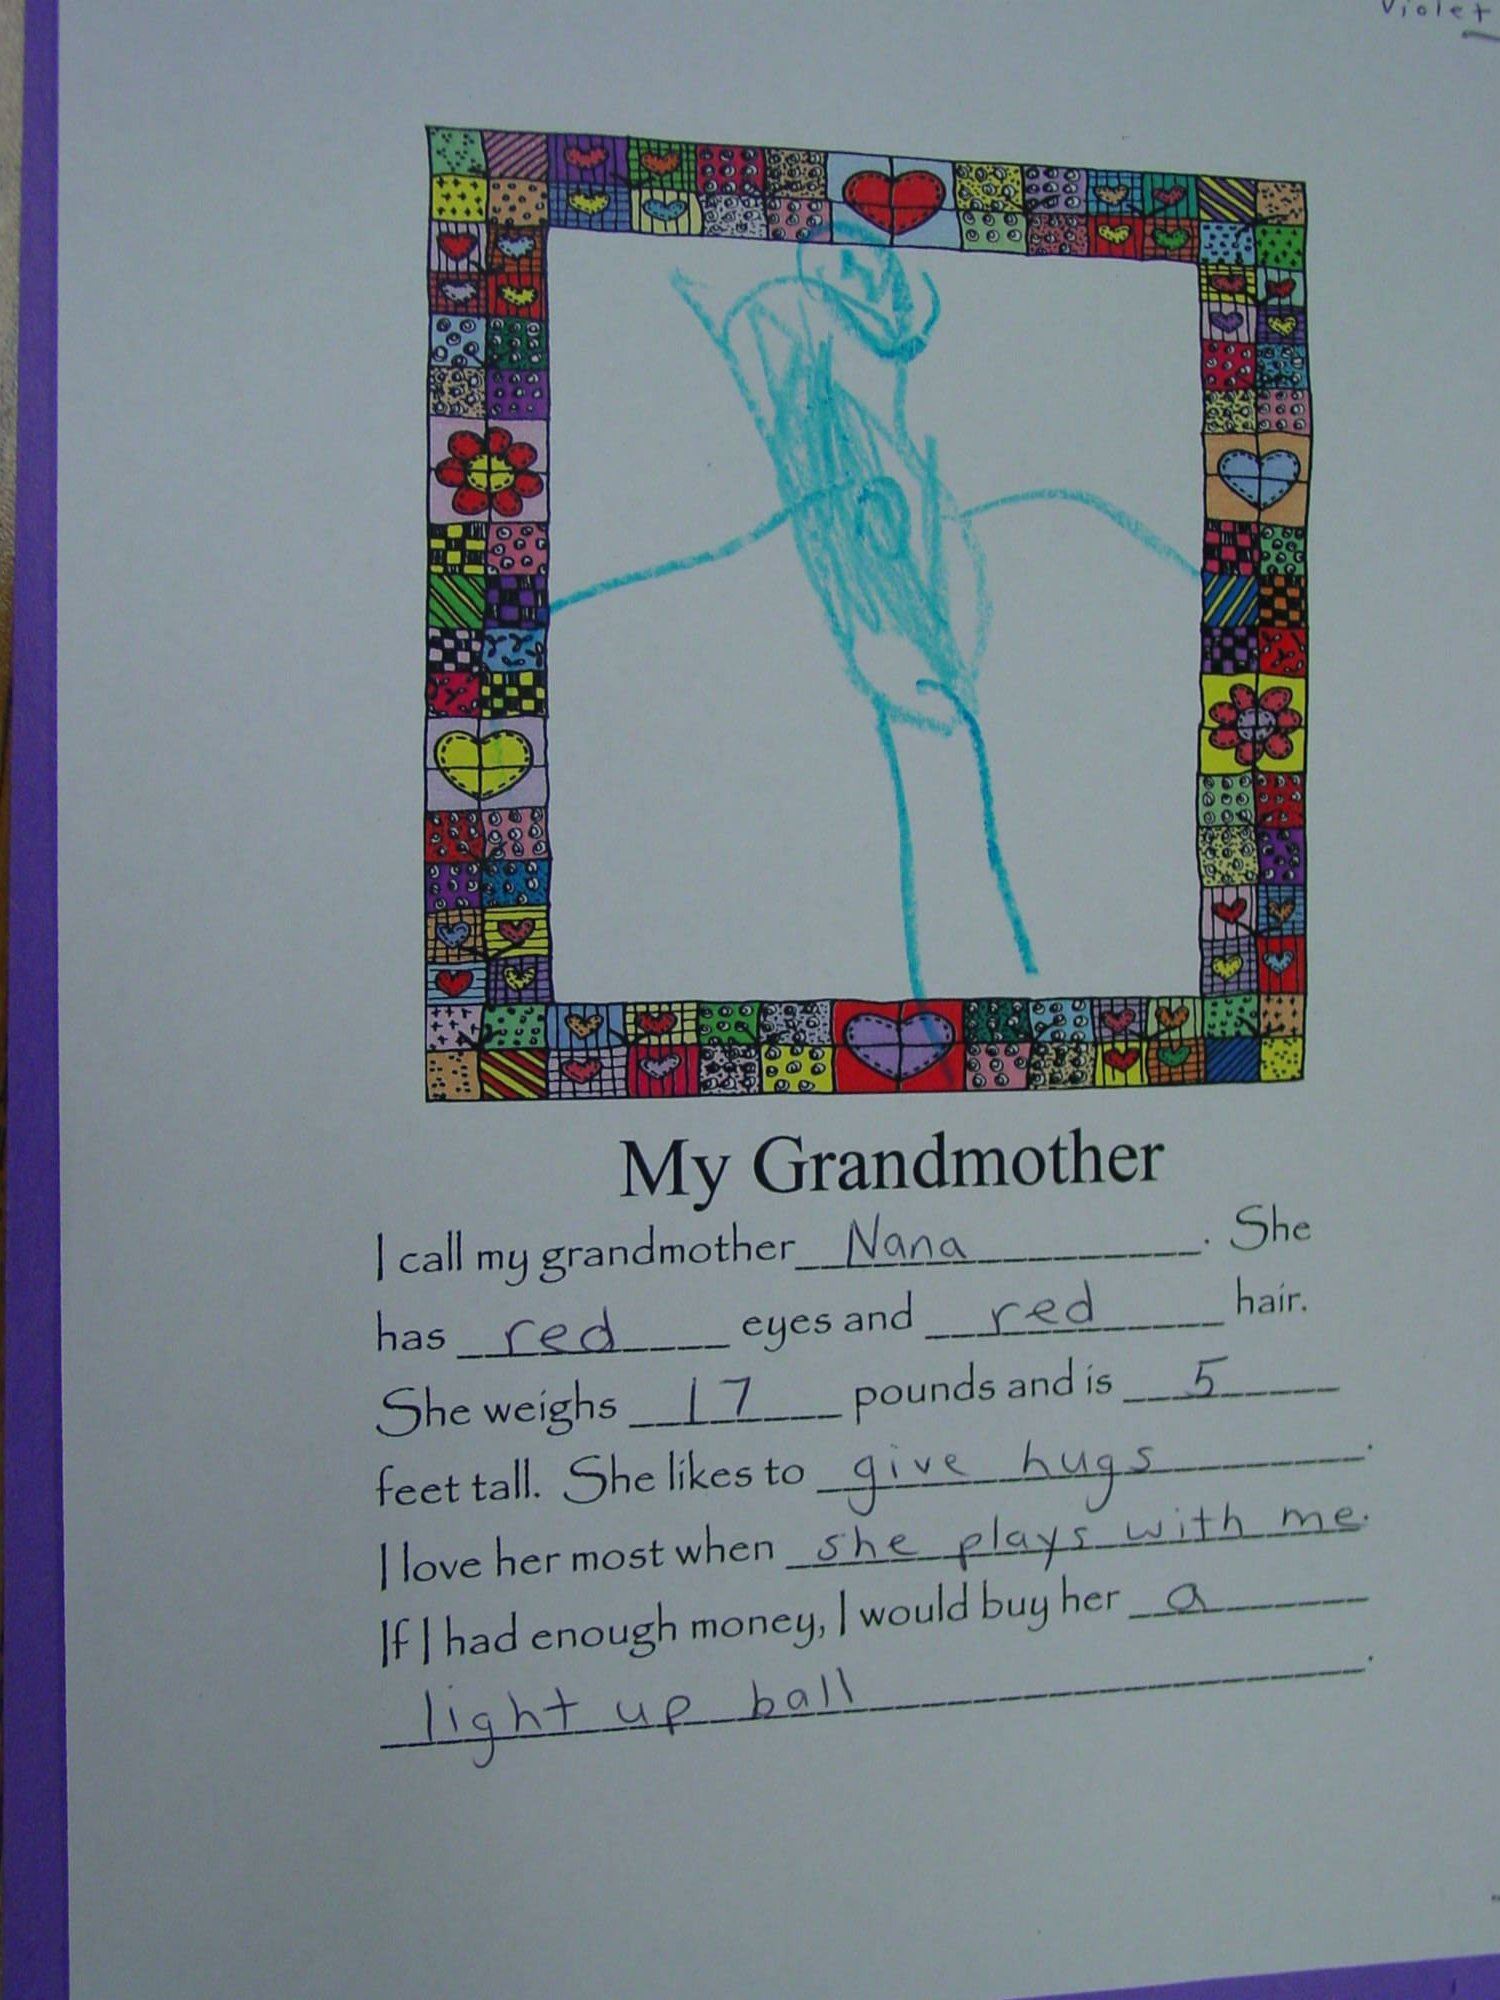 Violet
My Grandmother
I call my grandmother Nana. She
has red eyes and red hair.
She weighs 17 pounds and is 5
feet tall. She likes to give hugs.
I love her most when she plays with me.
If I had enough money, I would buy her a
light up ball.